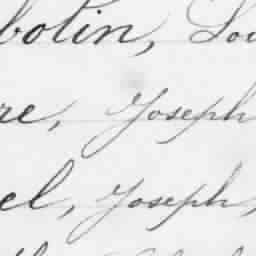 botin, Lou
re, Joseph
el, Joseph,